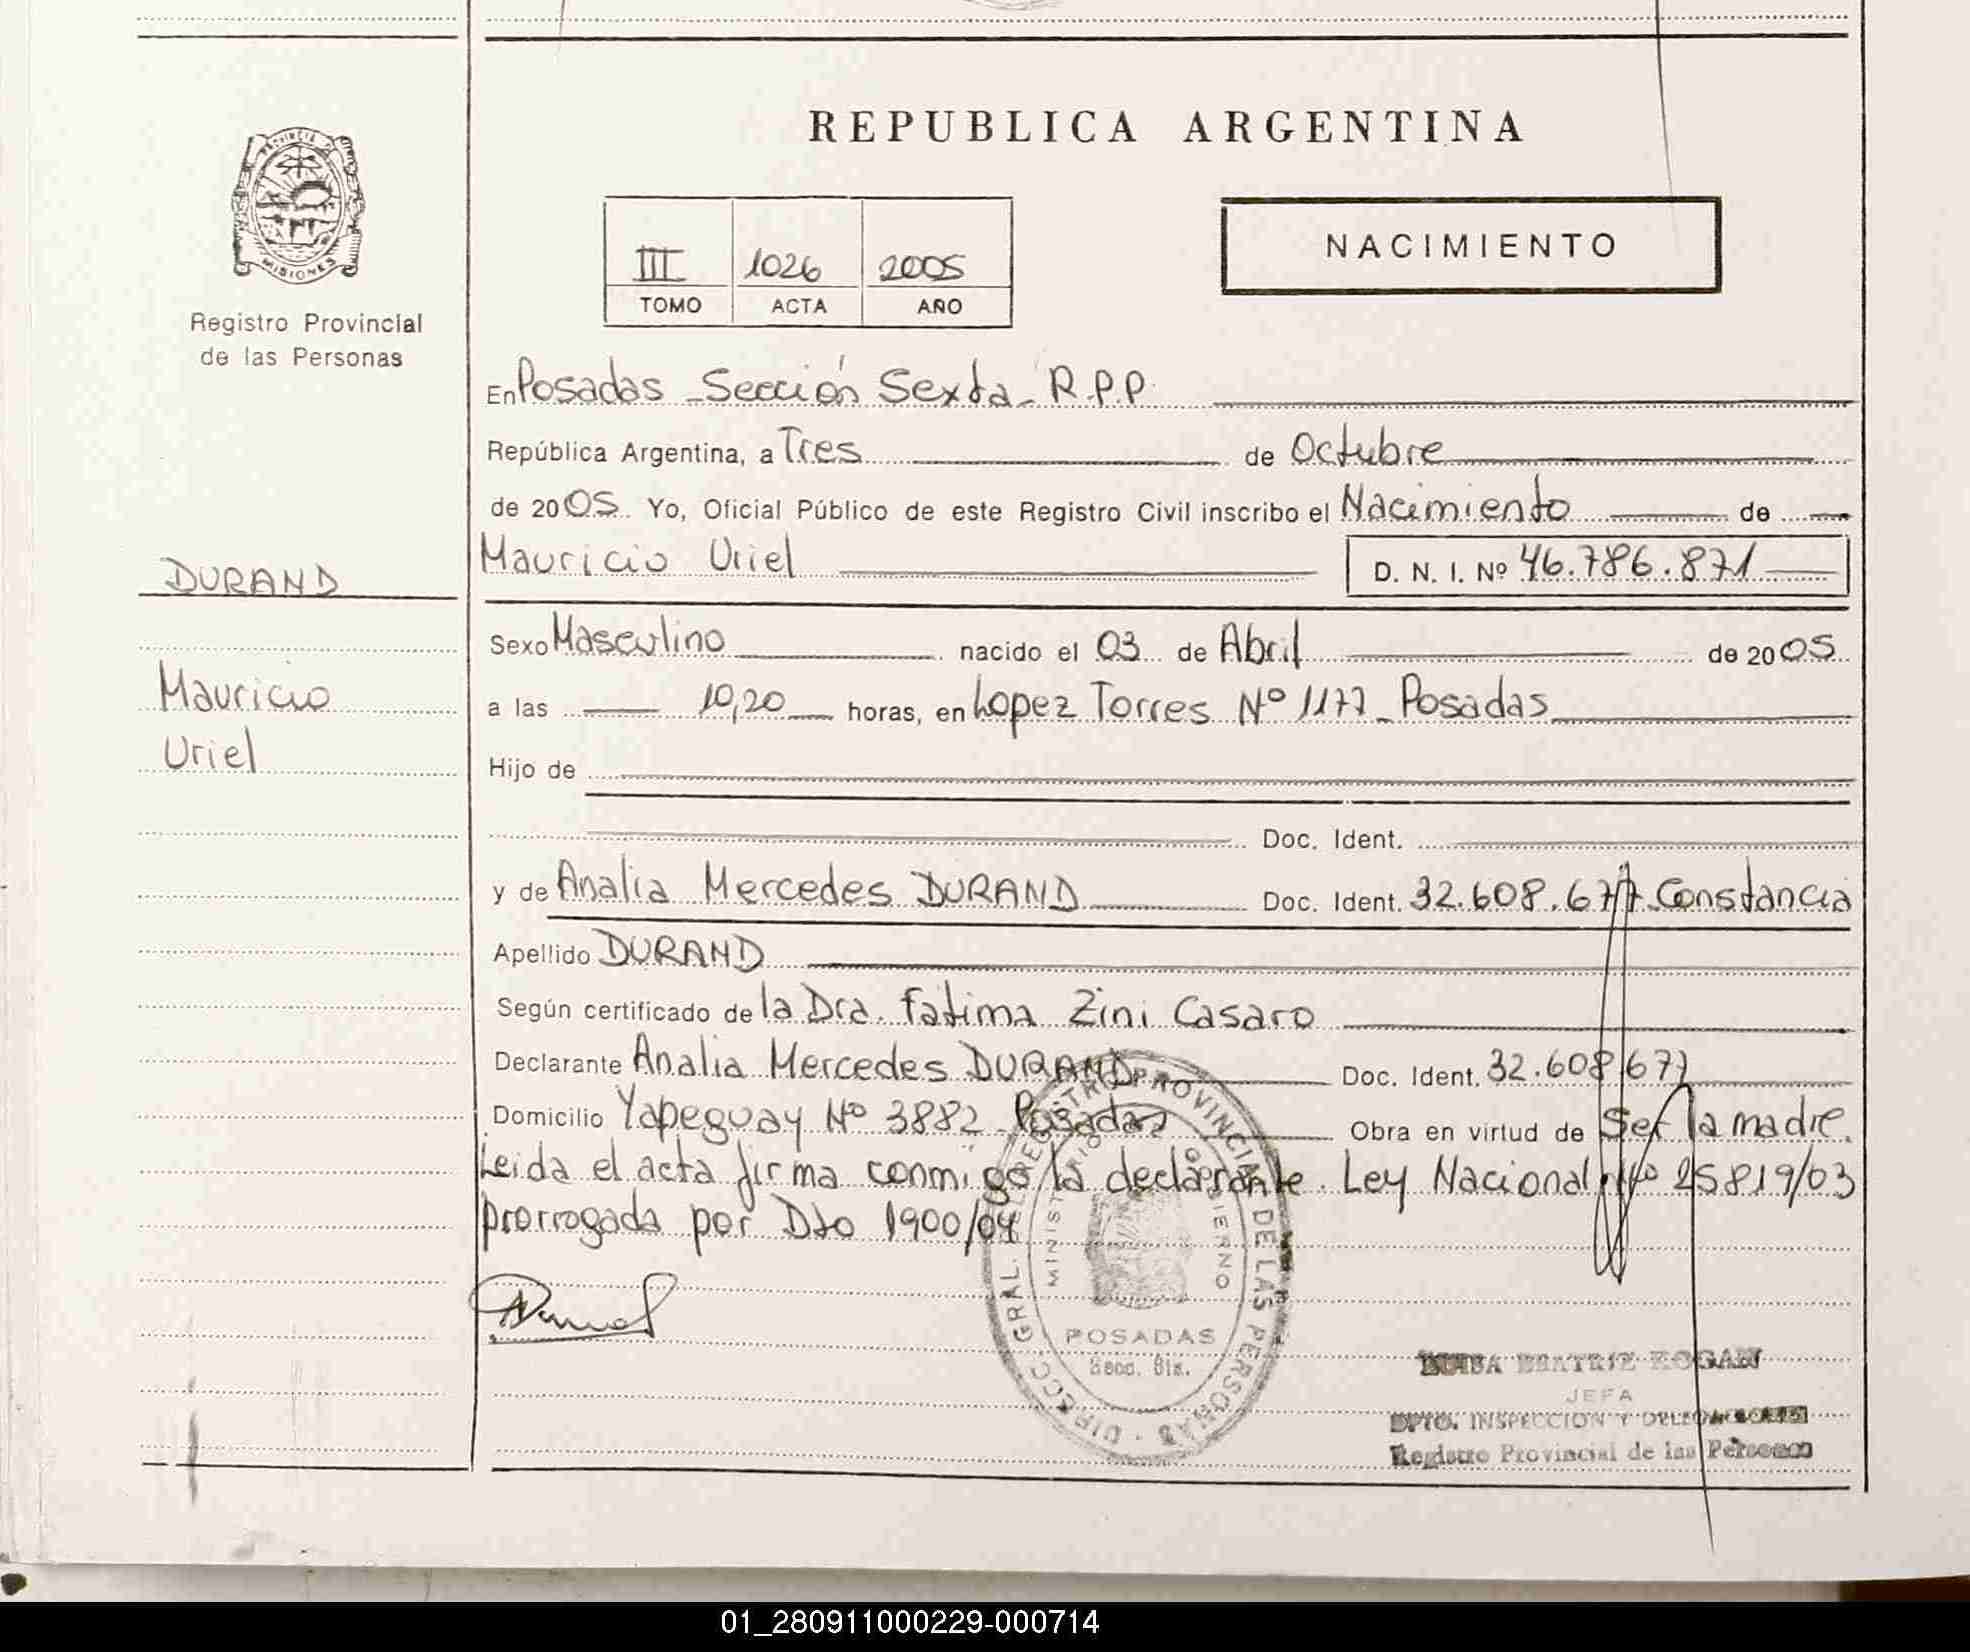 REPUBLICA ARGENTINA
PROVINCIA DE
MISIONES
Registro Provincial
de las Personas
III 1026 2005
TOMO ACTA AÑO
NACIMIENTO
En Posadas - Sección Sexta - R.P.P.
República Argentina, a Tres de Octubre
de 2005 Yo, Oficial Público de este Registro Civil inscribo el Nacimiento de
Mauricio Uriel D. N. I. Nº 46.786.871
DURAND
Mauricio
Uriel
Sexo Masculino nacido el 03 de Abril de 2005
a las 10,20 horas, en Lopez Torres Nº 1177 - Posadas
Hijo de
Doc. Ident.
y de Analia Mercedes DURAND Doc. Ident. 32.608.677 Constancia
Apellido DURAND
Según certificado de la Dra. Fatima Zini Casaro
Declarante Analia Mercedes DURAND Doc. Ident. 32.608.677
Domicilio Yapeguay Nº 3882 - Posadas Obra en virtud de Ser la madre.
Leida el acta firma conmigo la declarante. Ley Nacional Nº 25819/03
prorrogada por Dto 1900/04
DIRECC. GRAL. REGISTRO PROVINCIAL DE LAS PERSONAS
MINISTERIO GOBIERNO
POSADAS
Secc. 6ta.
BEATRIZ ROGAN
JEFA
DPTO. INSPECCION Y DELEGACIONES
Registro Provincial de las Personas
01_280911000229-000714